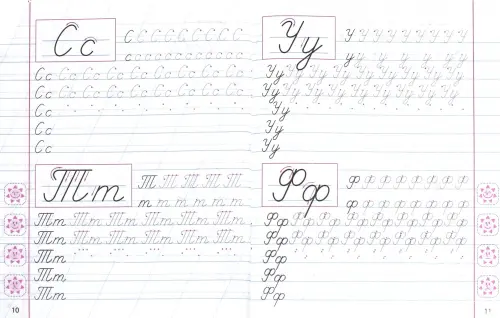 Сс
С С С С С С С С С
с с с с с с с с с с с
Сс Сс Сс Сс Сс Сс Сс Сс
Сс Сс Сс Сс Сс Сс Сс Сс
Сс
Сс
Сс
Тт
Т Т Т Т Т
т т т т т т
Тт Тт Тт Тт Тт Тт
Тт Тт Тт Тт Тт Тт
Тт
Тт
Тт
10
Уу
У У У У У У У У
у у у у у у
Уу Уу Уу Уу Уу Уу Уу Уу
Уу Уу Уу Уу Уу Уу Уу Уу
Уу
Уу
Уу
Фф
Ф Ф Ф Ф Ф Ф Ф Ф
ф ф ф ф ф ф ф
Фф Фф Фф Фф Фф Фф Фф Фф
Фф Фф Фф Фф Фф Фф Фф Фф
Фф
Фф
Фф